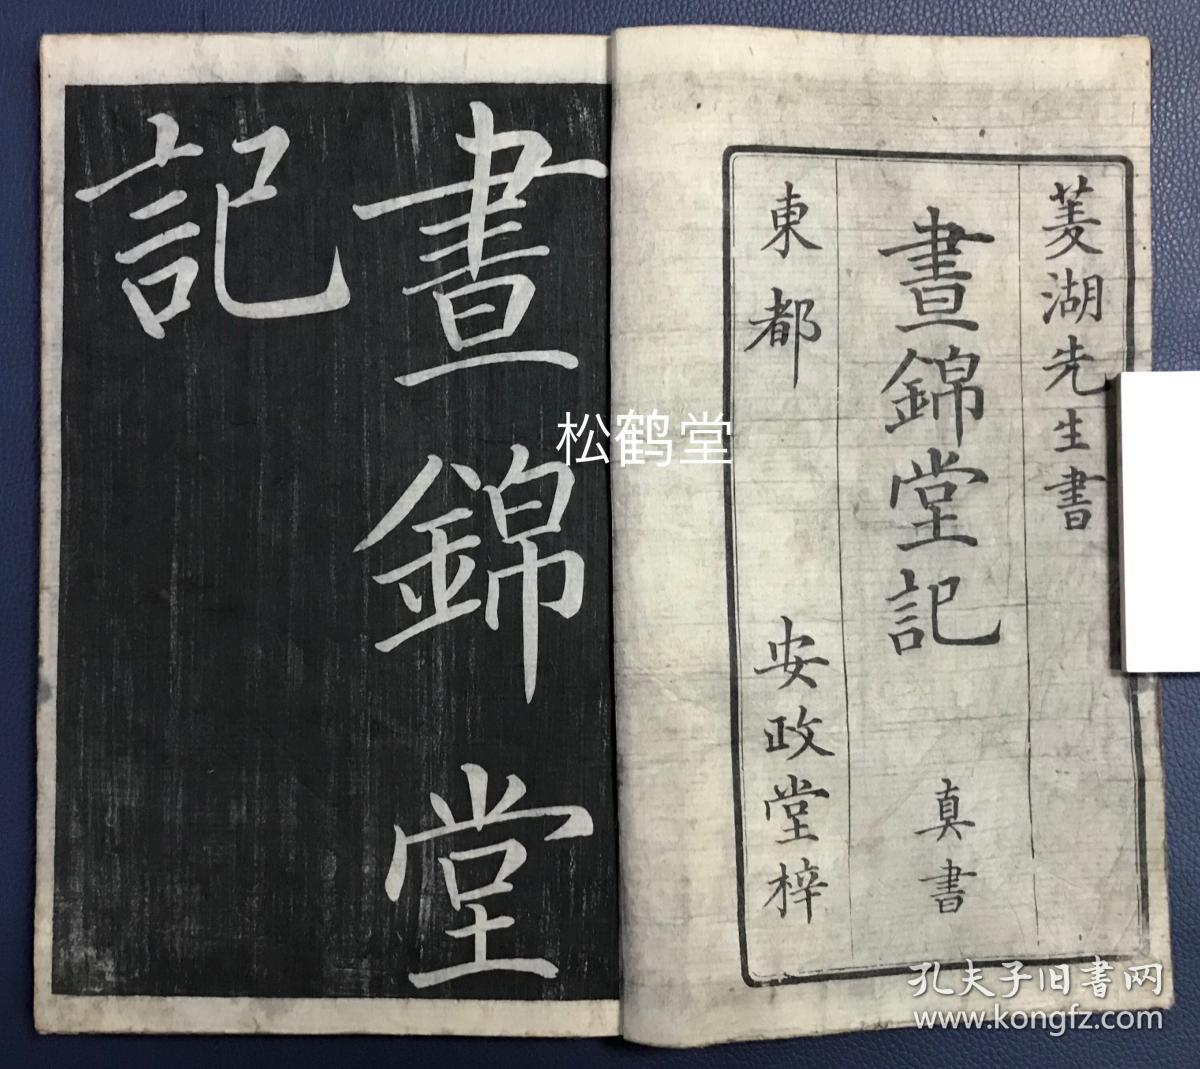 菱湖先生書
晝錦堂記 真書
東都 安政堂梓
晝錦堂
記
松鹤堂
孔夫子旧书网
www.kongfz.com